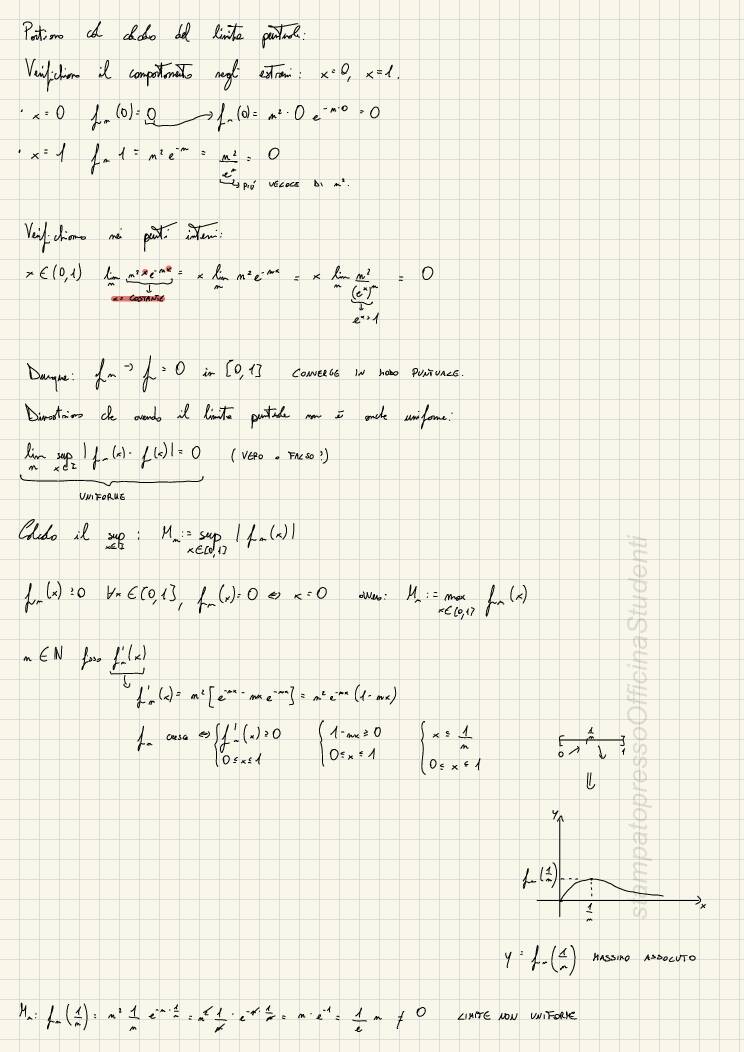 Partiamo col calcolo del limite puntuale:
Verifichiamo il comportamento negli estremi: x=0, x=1.
· x=0 fₙ(0)=0 → fₙ(0)= n²·0 e^(-n·0) = 0
· x=1 fₙ 1 = n² e^(-n) = n²/eⁿ = 0
→ PIÙ VELOCE DI n².
Verifichiamo nei punti interni:
x ∈ (0,1) lim_n n² x e^(-nx) = x lim_n n² e^(-nx) = x lim_n n²/(e^x)^n = 0
x = COSTANTE
e^x > 1
Dunque: fₙ → f = 0 in [0,1] CONVERGE IN MODO PUNTUALE.
Dimostriamo che avendo il limite puntuale non è anche uniforme:
lim_n sup_(x∈I) | fₙ(x) - f(x)| = 0 (VERO o FALSO?)
UNIFORME
Calcolo il sup_(x∈I) : Mₙ := sup_(x∈[0,1]) | fₙ(x)|
fₙ(x) ≥ 0 ∀x ∈ [0,1], fₙ(x)=0 ⇔ x=0 ovvero: Mₙ := max_(x∈[0,1]) fₙ(x)
n ∈ N fisso f'ₙ(x)
f'ₙ(x) = n² [ e^(-nx) - nx e^(-nx) ] = n² e^(-nx) (1-nx)
fₙ cresce ⇔ { f'ₙ(x) ≥ 0 { 1-nx ≥ 0 { x ≤ 1/n
0 ≤ x ≤ 1 0 ≤ x ≤ 1 0 ≤ x ≤ 1
1/n
0 ↗ ↘ 1
⇓
y
fₙ(1/n)
1/n
x
y = fₙ(1/n) MASSIMO ASSOLUTO
Mₙ: fₙ(1/n) = n² 1/n e^(-n·1/n) = n² 1/n · e^(-n·1/n) = n·e^(-1) = 1/e n ≠ 0 LIMITE NON UNIFORME
stampatopressoOfficinaStudenti